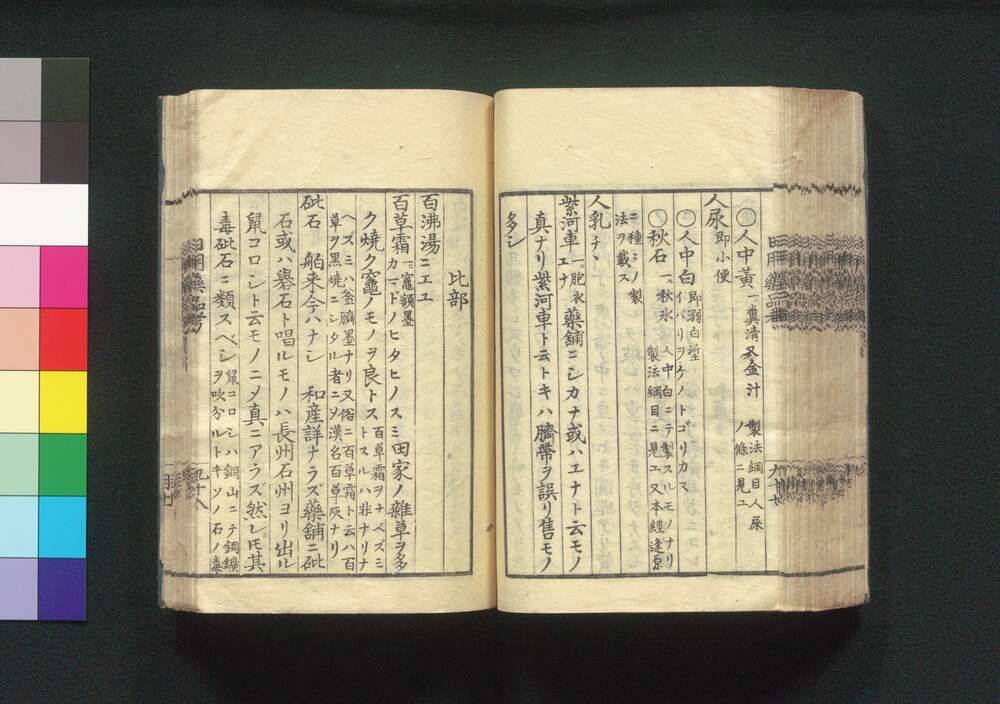 人中黄 一糞清 又金汁 製法綱目人屎
ノ條ニ見ユ
人尿 即小便
人中白 即溺白垽
イバリヲケノトゴリカス
秋石 一、秋氷 人中白ニテ製スルモノナリ
製法綱目ニ見ユ又本經逢原
ニ種ミノ製
法ヲ載ス
人乳 チヽ
紫河車 エナ 一胞衣 藥舖ニシカナ或ハエナト云モノ
真ナリ紫河車ト云トキハ臍帶ヲ誤リ售モノ
多シ
比部
百沸湯 ニエユ
百草霜 カマドノヒタヒノスミ 一、竈額墨 田家ノ雜草ヲ多
ク燒ク竈ノモノヲ良トス 百草霜ヲナベズミ
トスルハ非ナリナ
ベズミハ釜臍墨ナリ又俗ニ百草霜ト云ハ百
草ヲ黒燒ニシタル者ニヲ漢名百草灰ナリ
砒石 舶来今ハナシ 和産詳ナラズ藥舖ニ砒
石或ハ礜石ト唱ルモノハ長州石州ヨリ出ル
鼠コロシト云モノニメ真ニアラズ然レ𪜈其
毒砒石ニ類スベシ 鼠コロシハ銅山ニテ鋼鑛
ヲ吹分ルトキソノ石ノ毒
日用藥品考
九十八